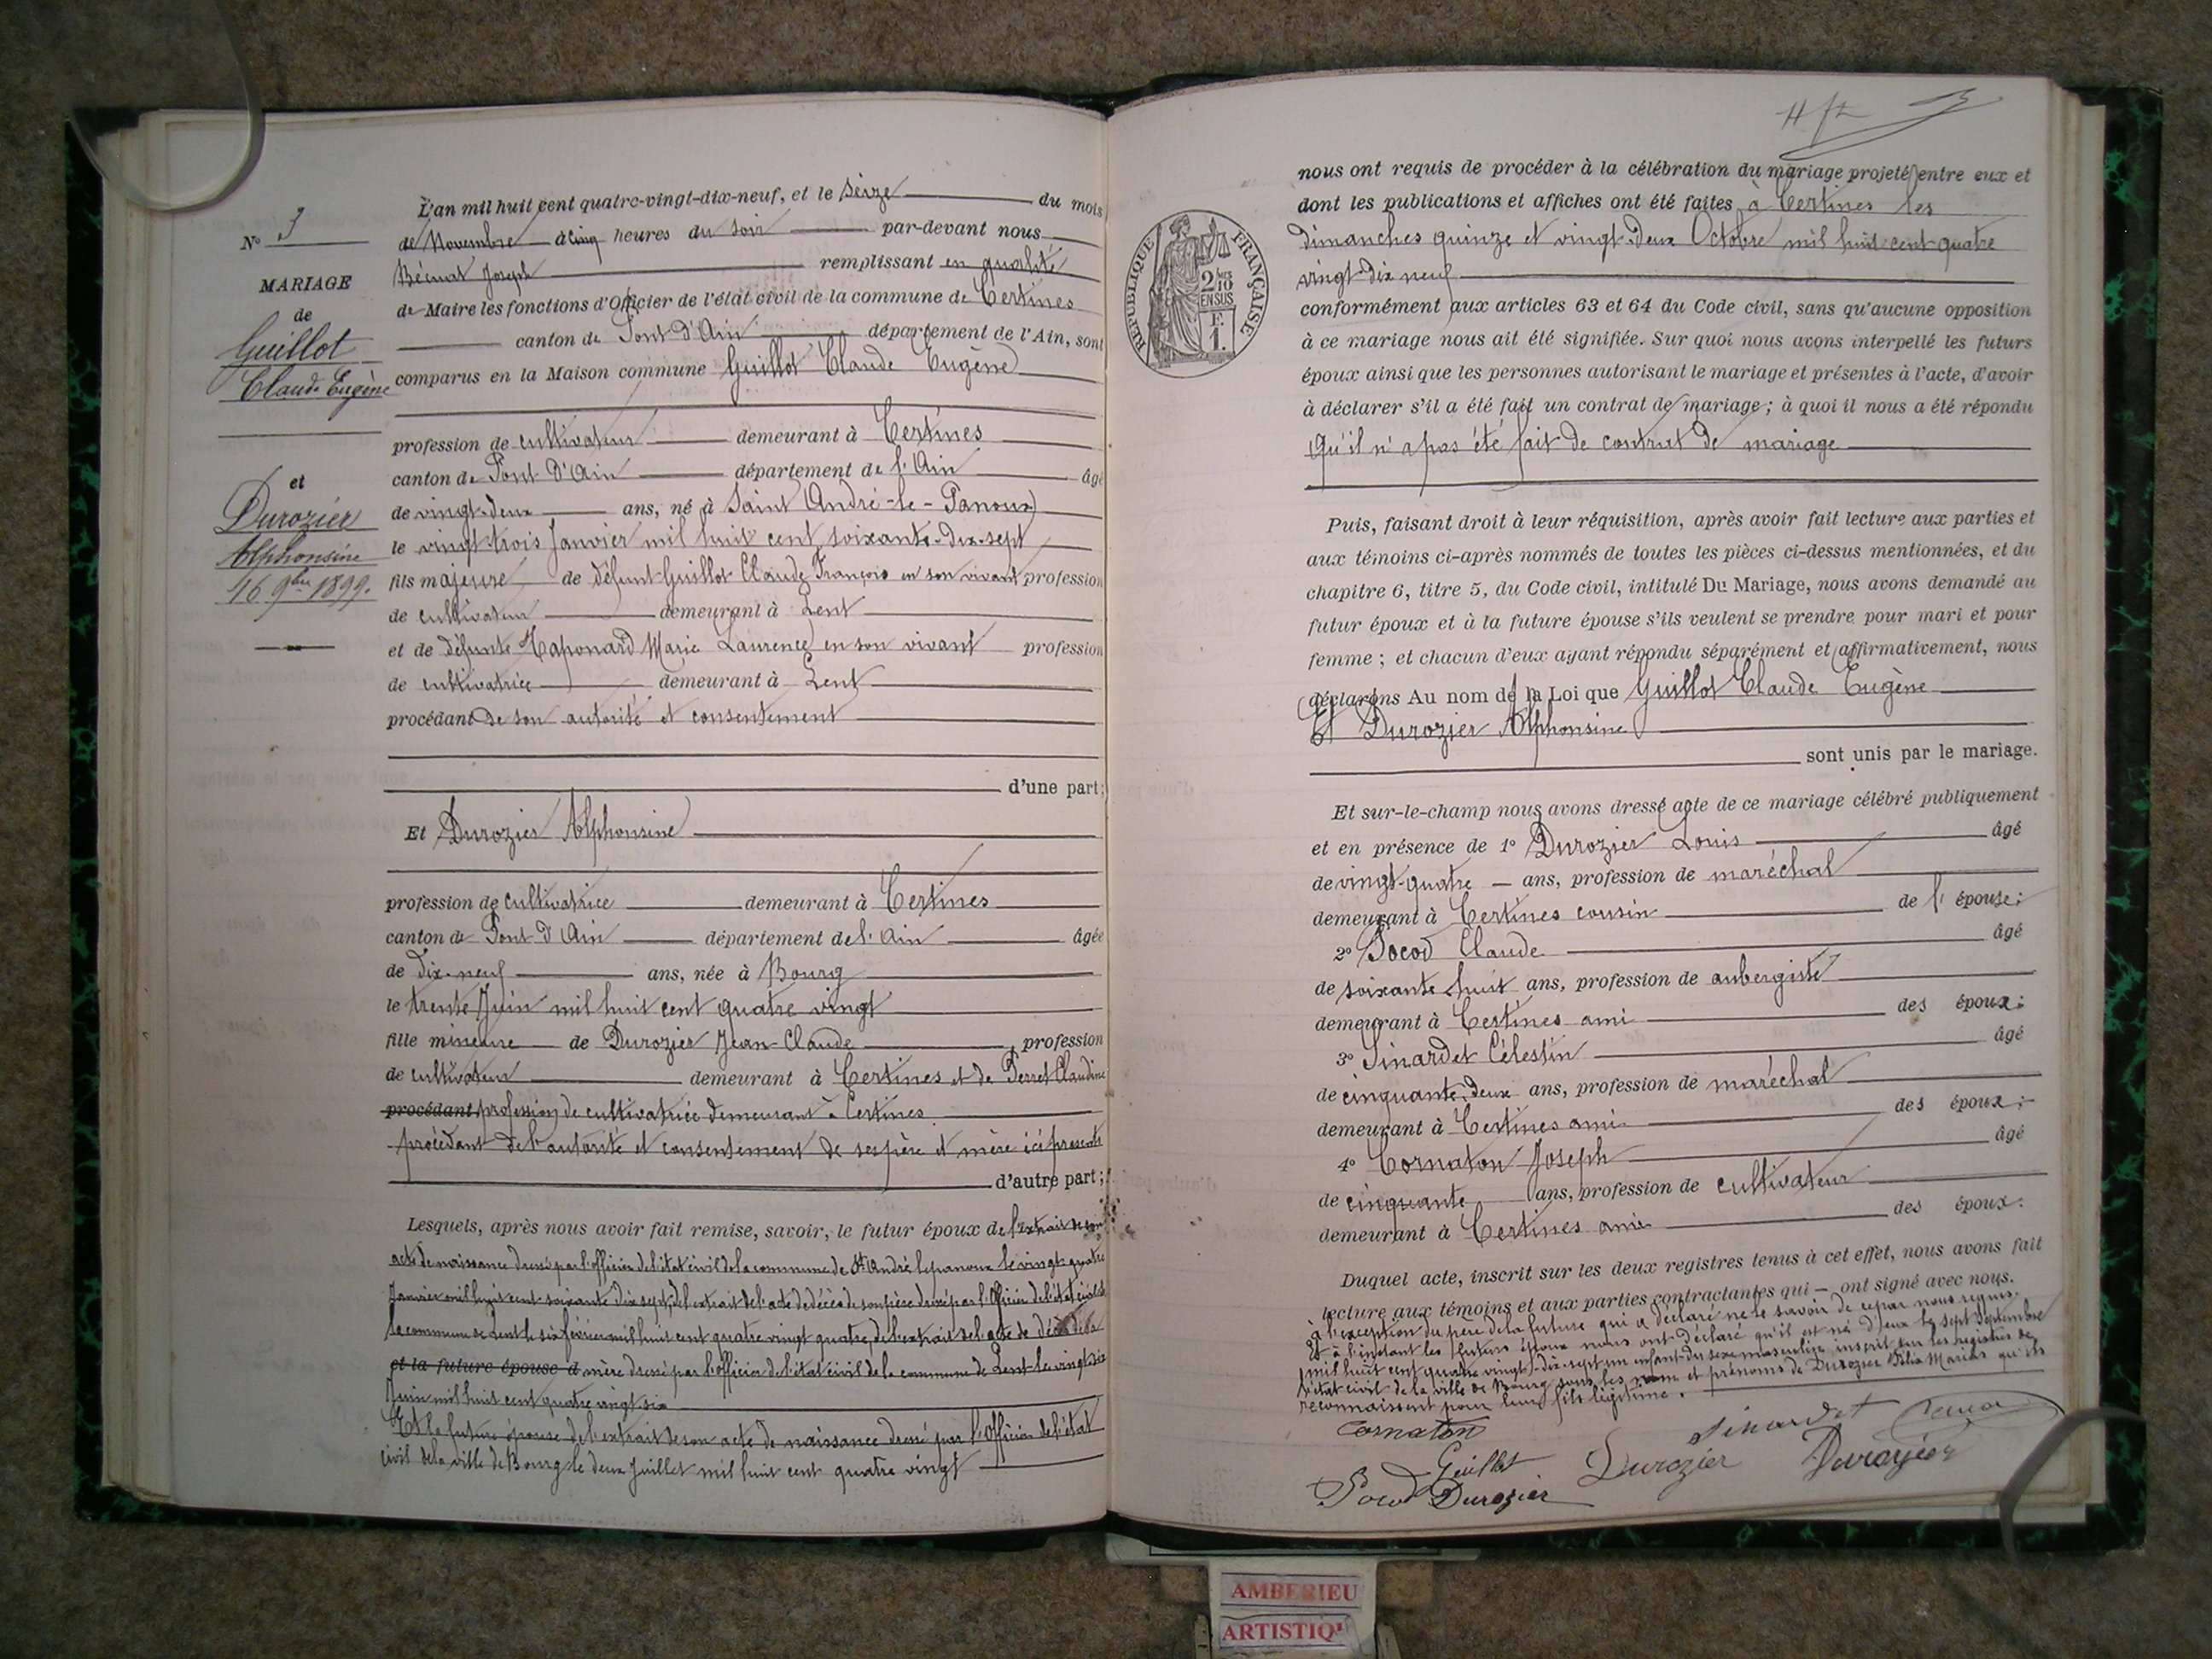 L'an mil huit cent quatre-vingt-dix-neuf, et le seize du mois
de Novembre à cinq heures du soir par-devant nous
Joseph remplissant en qualité
de Maire les fonctions d'Officier de l'état civil de la commune de Certines
canton de Pont d'Ain département de l'Ain, sont
comparus en la Maison commune Guillot Claude Eugène
profession de cultivateur demeurant à Certines
canton de Pont d'Ain département de l'Ain âgé
de vingt-deux ans, né à Saint André-le-Panoux
le vingt trois Janvier mil huit cent soixante-dix-sept
fils majeure de défunt Guillot Claude François en son vivant profession
de cultivateur demeurant à Lent
et de défunte Taponard Marie Laurence en son vivant profession
de cultivatrice demeurant à Lent
procédant de son autorité et consentement
d'une part;
Et Durozier Alphonsine
profession de cultivatrice demeurant à Certines
canton de Pont d'Ain département de l'Ain âgée
de dix-neuf ans, née à Bourg
le trente Juin mil huit cent quatre vingt
fille mineure de Durozier Jean-Claude profession
de cultivateur demeurant à Certines et de Perret Claudine
procédant profession de cultivatrice demeurant à Certines
procédant de l'autorité et consentement de ses père et mère ici présents
d'autre part;
Lesquels, après nous avoir fait remise, savoir, le futur époux de l'extrait de son
acte de naissance dressé par l'officier de l'état civil de la commune de St André le panoux le vingt quatre
Janvier mil huit cent soixante dix sept, de l'extrait de l'acte de décès de son père dressé par l'Officier de l'état civil de
la commune de Lent le six février mil huit cent quatre vingt quatre, de l'extrait de l'acte de décès de la
et la future épouse d mère dressé par l'officier de l'état civil de la commune de Lent le vingt six
Juin mil huit cent quatre vingt six
Et la future épouse de l'extrait de son acte de naissance dressé par l'officier de l'état
civil de la ville de Bourg le deux Juillet mil huit cent quatre vingt
N° 3
MARIAGE
de
Guillot
Claude Eugène
et
Durozier
Alphonsine
16 9bre 1899.
nous ont requis de procéder à la célébration du mariage projeté entre eux et
dont les publications et affiches ont été faites à Certines les
dimanches quinze et vingt-deux Octobre mil huit cent quatre
vingt-dix neuf
conformément aux articles 63 et 64 du Code civil, sans qu'aucune opposition
à ce mariage nous ait été signifiée. Sur quoi nous avons interpellé les futurs
époux ainsi que les personnes autorisant le mariage et présentes à l'acte, d'avoir
à déclarer s'il a été fait un contrat de mariage; à quoi il nous a été répondu
Qu'il n'a pas été fait de contrat de mariage
RÉPUBLIQUE FRANÇAISE
2/10 EN SUS
F. 1.
Puis, faisant droit à leur réquisition, après avoir fait lecture aux parties et
aux témoins ci-après nommés de toutes les pièces ci-dessus mentionnées, et du
chapitre 6, titre 5, du Code civil, intitulé Du Mariage, nous avons demandé au
futur époux et à la future épouse s'ils veulent se prendre pour mari et pour
femme; et chacun d'eux ayant répondu séparément et affirmativement, nous
déclarons Au nom de la Loi que Guillot Claude Eugène
Et Durozier Alphonsine
sont unis par le mariage.
Et sur-le-champ nous avons dressé acte de ce mariage célébré publiquement
et en présence de 1° Durozier Louis âgé
de vingt-quatre ans, profession de maréchal
demeurant à Certines cousin de l'épouse;
2° Pocod Claude âgé
de soixante huit ans, profession de aubergiste
demeurant à Certines ami des époux;
3° Sinardet Célestin âgé
de cinquante-deux ans, profession de maréchal
demeurant à Certines ami des époux;
4° Cornaton Joseph âgé
de cinquante ans, profession de cultivateur
demeurant à Certines ami des époux.
Duquel acte, inscrit sur les deux registres tenus à cet effet, nous avons fait
lecture aux témoins et aux parties contractantes qui ont signé avec nous.
à l'exception du père de la future qui a déclaré ne le savoir de ce par nous requis.
Et à l'instant les futurs époux nous ont déclaré qu'il est né d'eux le sept Septembre
mil huit cent quatre vingt-dix-sept un enfant du sexe masculin inscrit sur les registres de
l'état civil de la ville de Bourg sous les nom et prénoms de Durozier Marius qu'ils
reconnaissent pour leur fils légitime.
Cornaton
Sinardet
Guillot
Durozier
Durozier
Pocod Durozier
AMBERIEU
ARTISTIQ